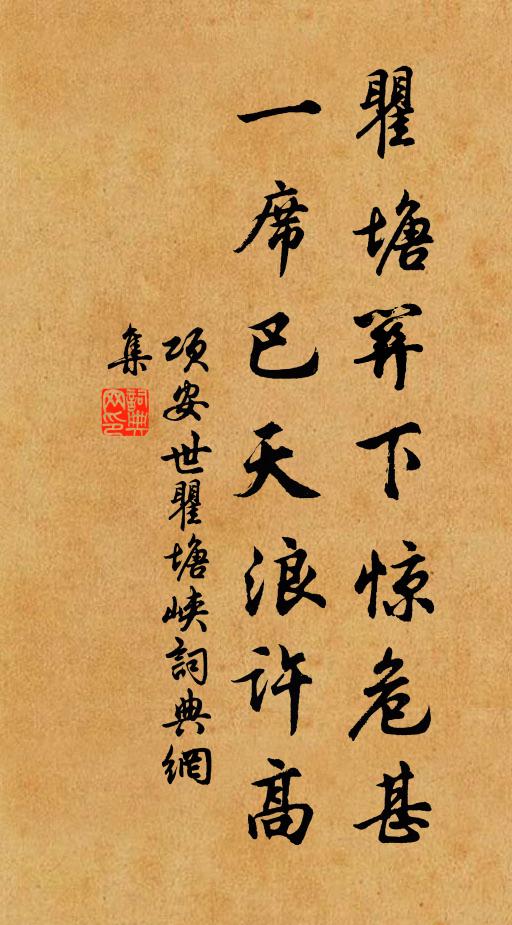 瞿塘关下惊危甚
一席巴天浪许高
项安世瞿塘峡詞典網
集
詞典網印